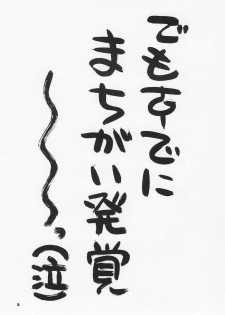 でもすでに
まちがい発覚
〜〜〜っ(泣)